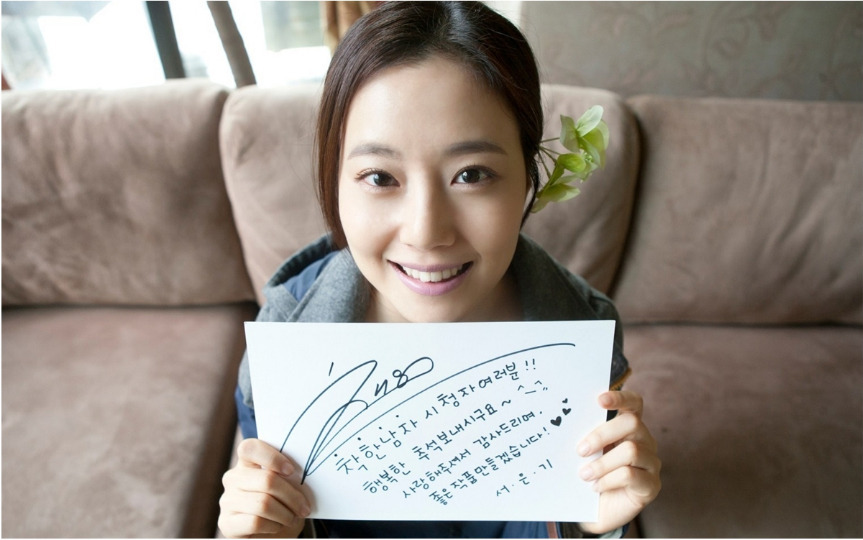 착한남자 시청자여러분!!
행복한 추석보내시구요~ ^_^
사랑해주셔서 감사드리며,
좋은작품만들겠습니다! ♥♥
서·은·기